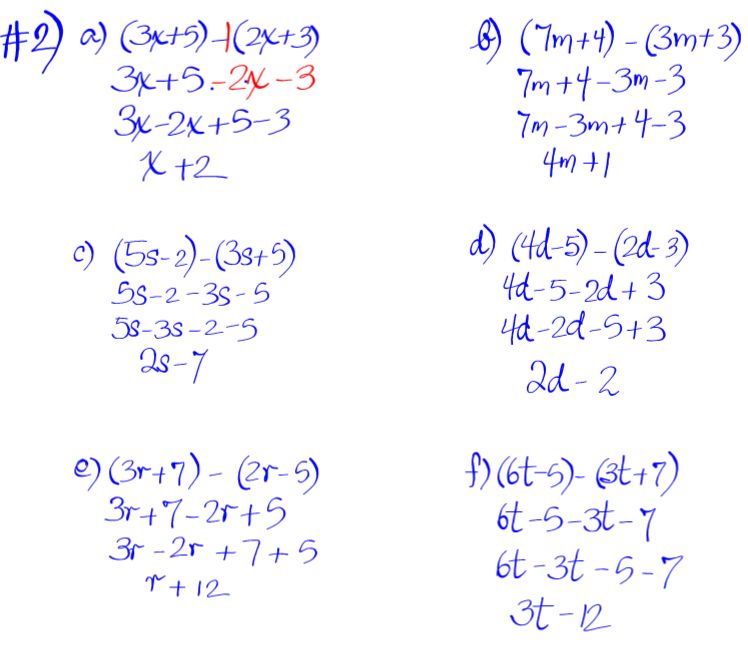 #2) a) (3x+5)-1(2x+3)
3x+5-2x-3
3x-2x+5-3
x+2
b) (7m+4)-(3m+3)
7m+4-3m-3
7m-3m+4-3
4m+1
c) (5s-2)-(3s+5)
5s-2-3s-5
5s-3s-2-5
2s-7
d) (4d-5)-(2d-3)
4d-5-2d+3
4d-2d-5+3
2d-2
e) (3r+7)-(2r-5)
3r+7-2r+5
3r-2r+7+5
r+12
f) (6t-5)-(3t+7)
6t-5-3t-7
6t-3t-5-7
3t-12